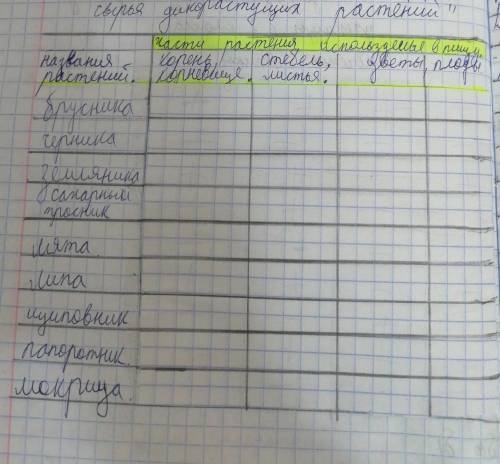 сырья дикорастущих растений"
части растения, используемые в пищу
названия корень, стебель, цветы, плоды
растений. корневище. листья.
брусника
черника
земляника
сахарный
тросник
мята
липа
шиповник
папоротник.
мокрица.